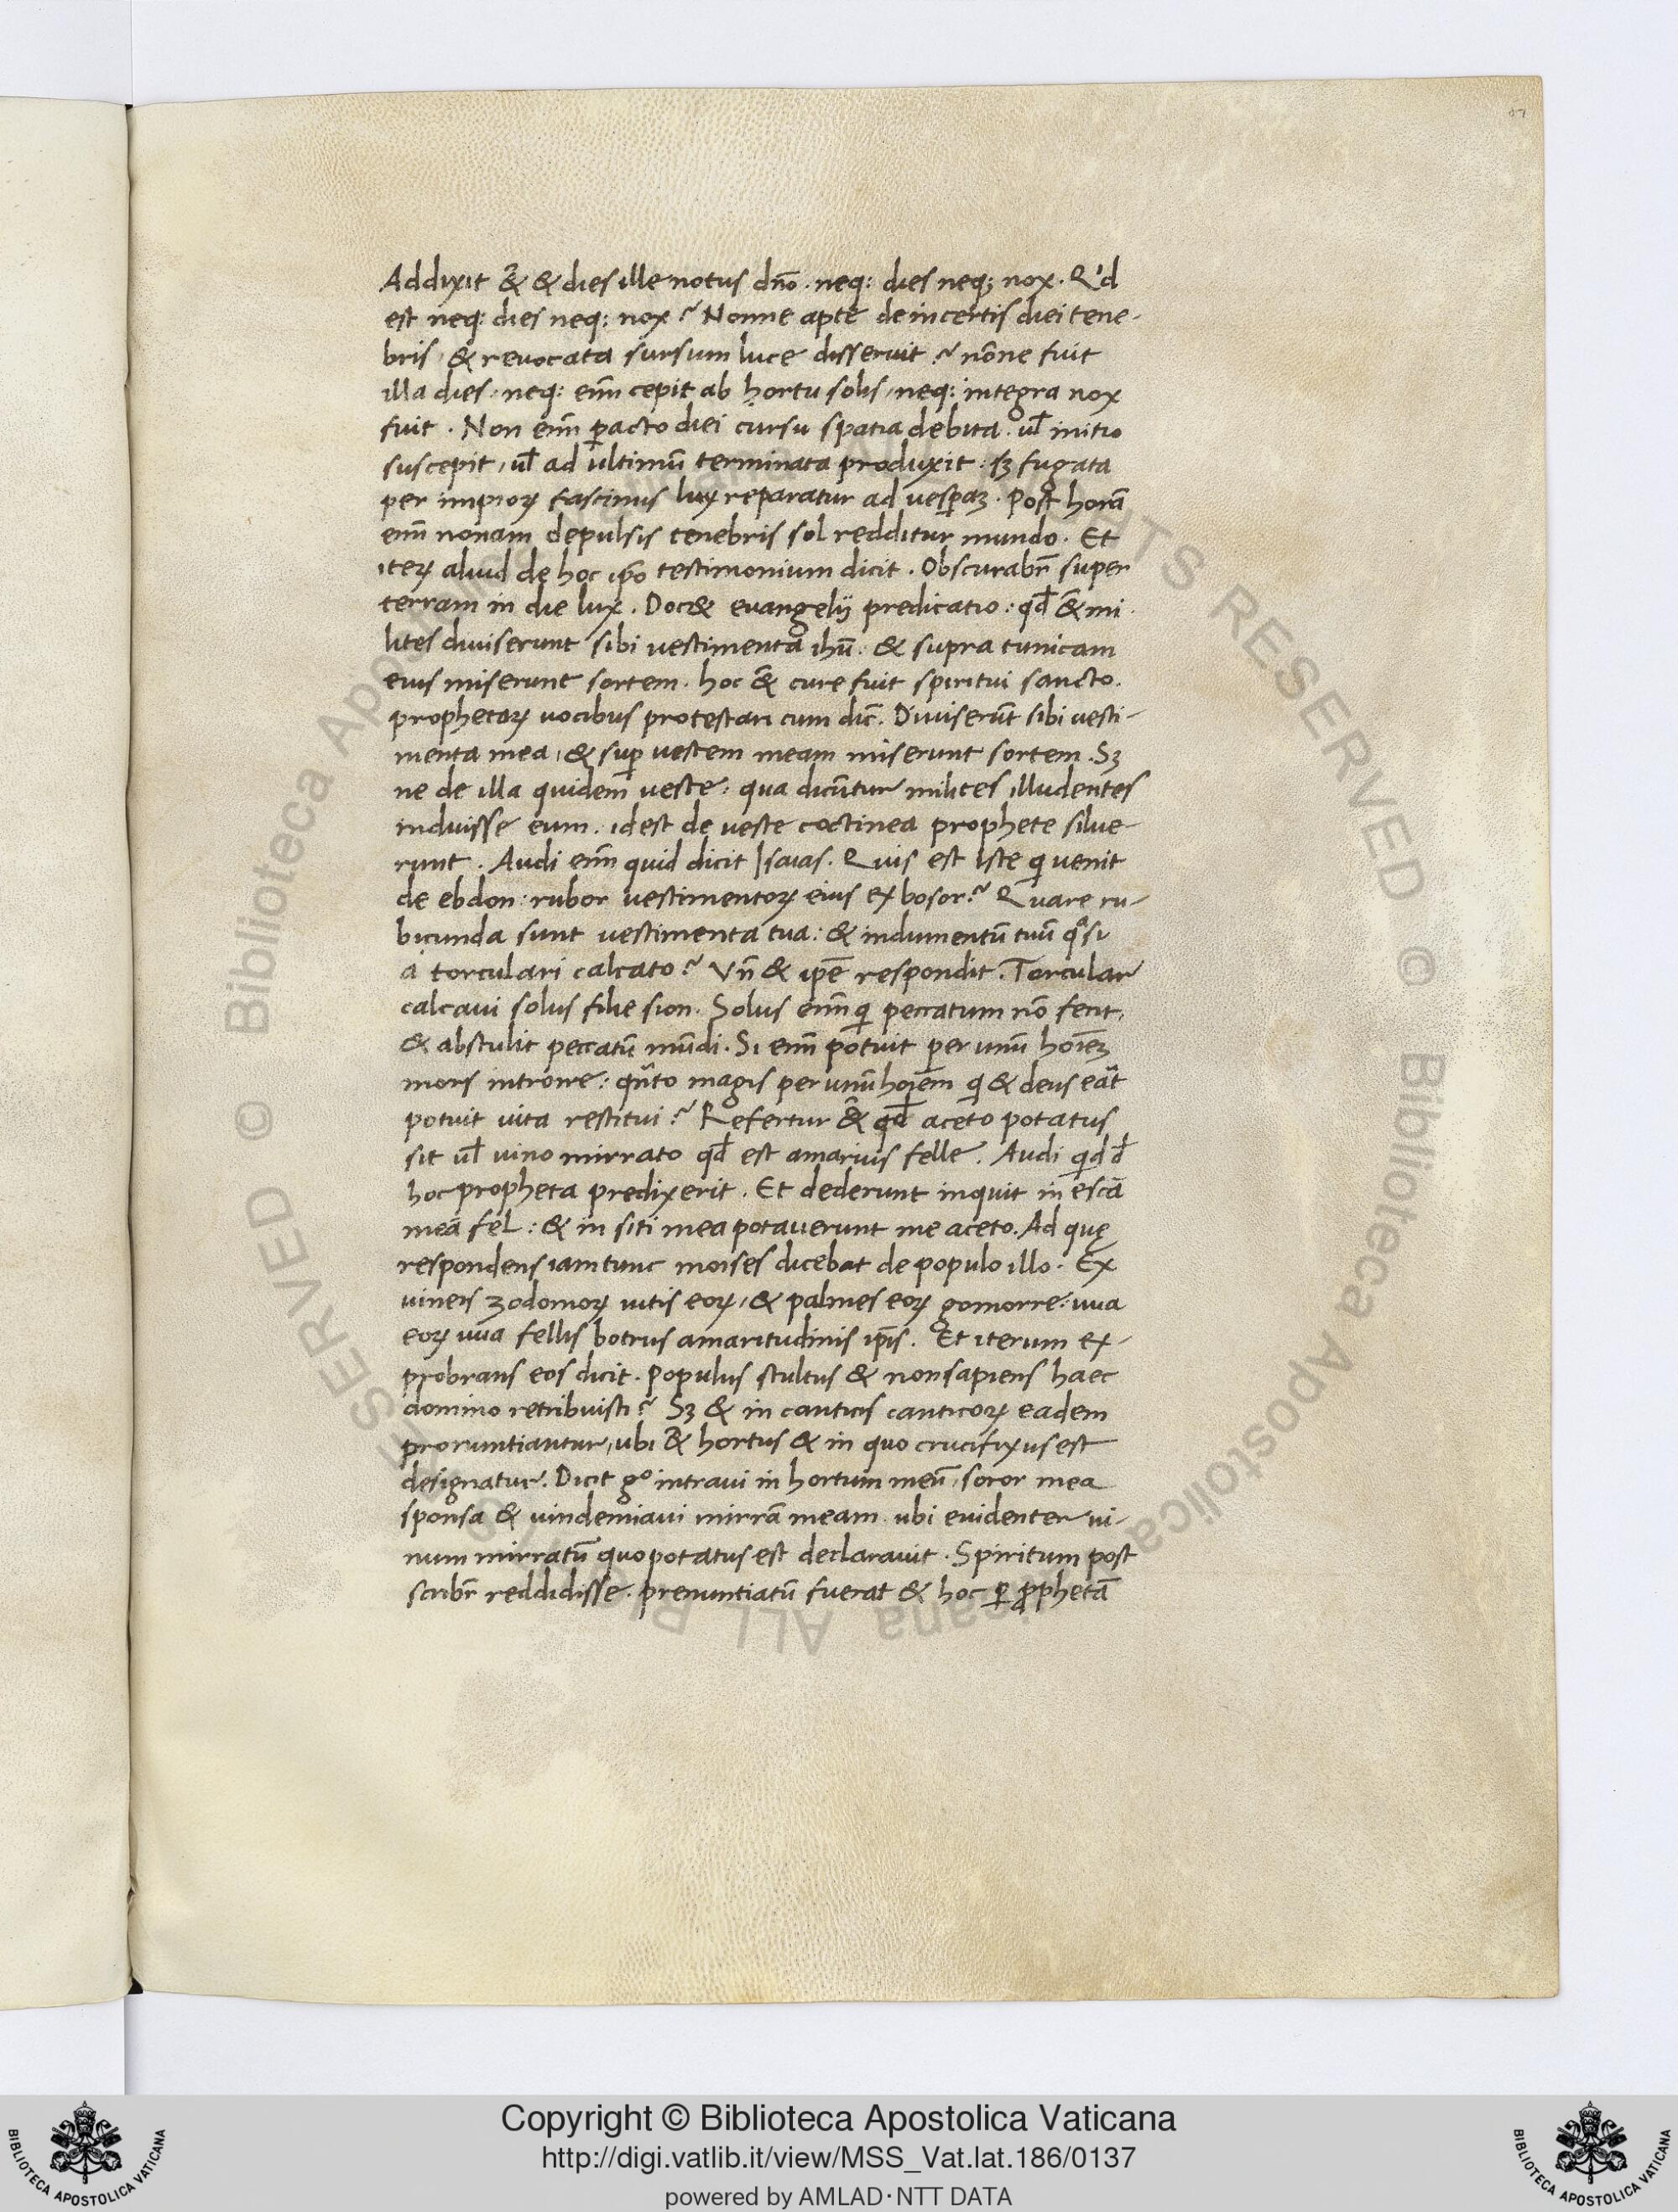 Addixit & & dies ille notus dnō. neq: dies neq; nox. Q'd
est neq: dies neq: nox? Nonne apte de incertis diei tene-
bris, & revocata sursum luce disseruit? nōne fuit
illa dies, neq: enī cepit ab hortu solis, neq: integra nox
fuit. Non enī ꝑacto diei cursu spatia debita. uł initio
suscepit, uł ad ultimū terminata produxit: sʒ fugata
per impioꝝ facinus lux reparatur ad uesꝑaʒ. Post horā
enī nonam depulsis tenebris sol redditur mundo. Et
iteꝝ aliud de hoc ip̄o testimonium dicit. Obscurabr̄ super
terram in die lux. Doc& euangelij predicatio: qđ & mi
lites diuiserunt sibi uestimenta ihū. & supra tunicam
eius miserunt sortem. hoc & cure fuit spiritui sancto.
prophetaꝝ uocibus protestari cum dic̄. Diuiserūt sibi uesti-
menta mea, & suꝑ uestem meam miserunt sortem. Sʒ
ne de illa quidem ueste: qua dicūtur milites illudentes
induisse eum. idest de ueste coctinea prophete silue-
runt. Audi enī quid dicit Isaias. Quis est Iste qi uenit
de ebdon: rubor uestimentoꝝ eius ex bosor? Quare ru-
bicunda sunt uestimenta tua: & indumentū tuū qasi
a torculari calcato? Vn̄ & ip̄e respondit. Torcular
calcaui solus filie sion. Solus enī qi peccatum nō fecit,
& abstulit peccatū mūdi. Si enī potuit per unū hoīeʒ
mors introire: qnāto magis per unū hoīem qi & deus eāt
potuit uita restitui? Refertur & qđ aceto potatus
sit uł uino mirrato qđ est amarius felle. Audi qid đ
hoc propheta predixerit. Et dederunt inquit in escā
meā fel: & in siti mea potauerunt me aceto. Ad quę
respondens iam tunc moises dicebat de populo illo. Ex
uineis zodomoꝝ uitis eoꝝ, & palmes eoꝝ gomorre: uua
eoꝝ uua fellis botrus amaritudinis ip̄is. Et iterum ex-
probrans eos dicit. Populus stultus & non sapiens haec
domino retribuisti? Sʒ & in canticis canticoꝝ eadem
pronuntiantur, ubi & hortus & in quo crucifixus est
designatur. Dicit go intraui in hortum meū, soror mea
sponsa & uindemiaui mirrā meam. ubi euidenter ui-
num mirratū quo potatus est declarauit. Spiritum post
scribr̄ reddidisse. prenuntiatū fuerat & hoc ꝑ ꝓphetā
Copyright © Biblioteca Apostolica Vaticana
http://digi.vatlib.it/view/MSS_Vat.lat.186/0137
powered by AMLAD·NTT DATA